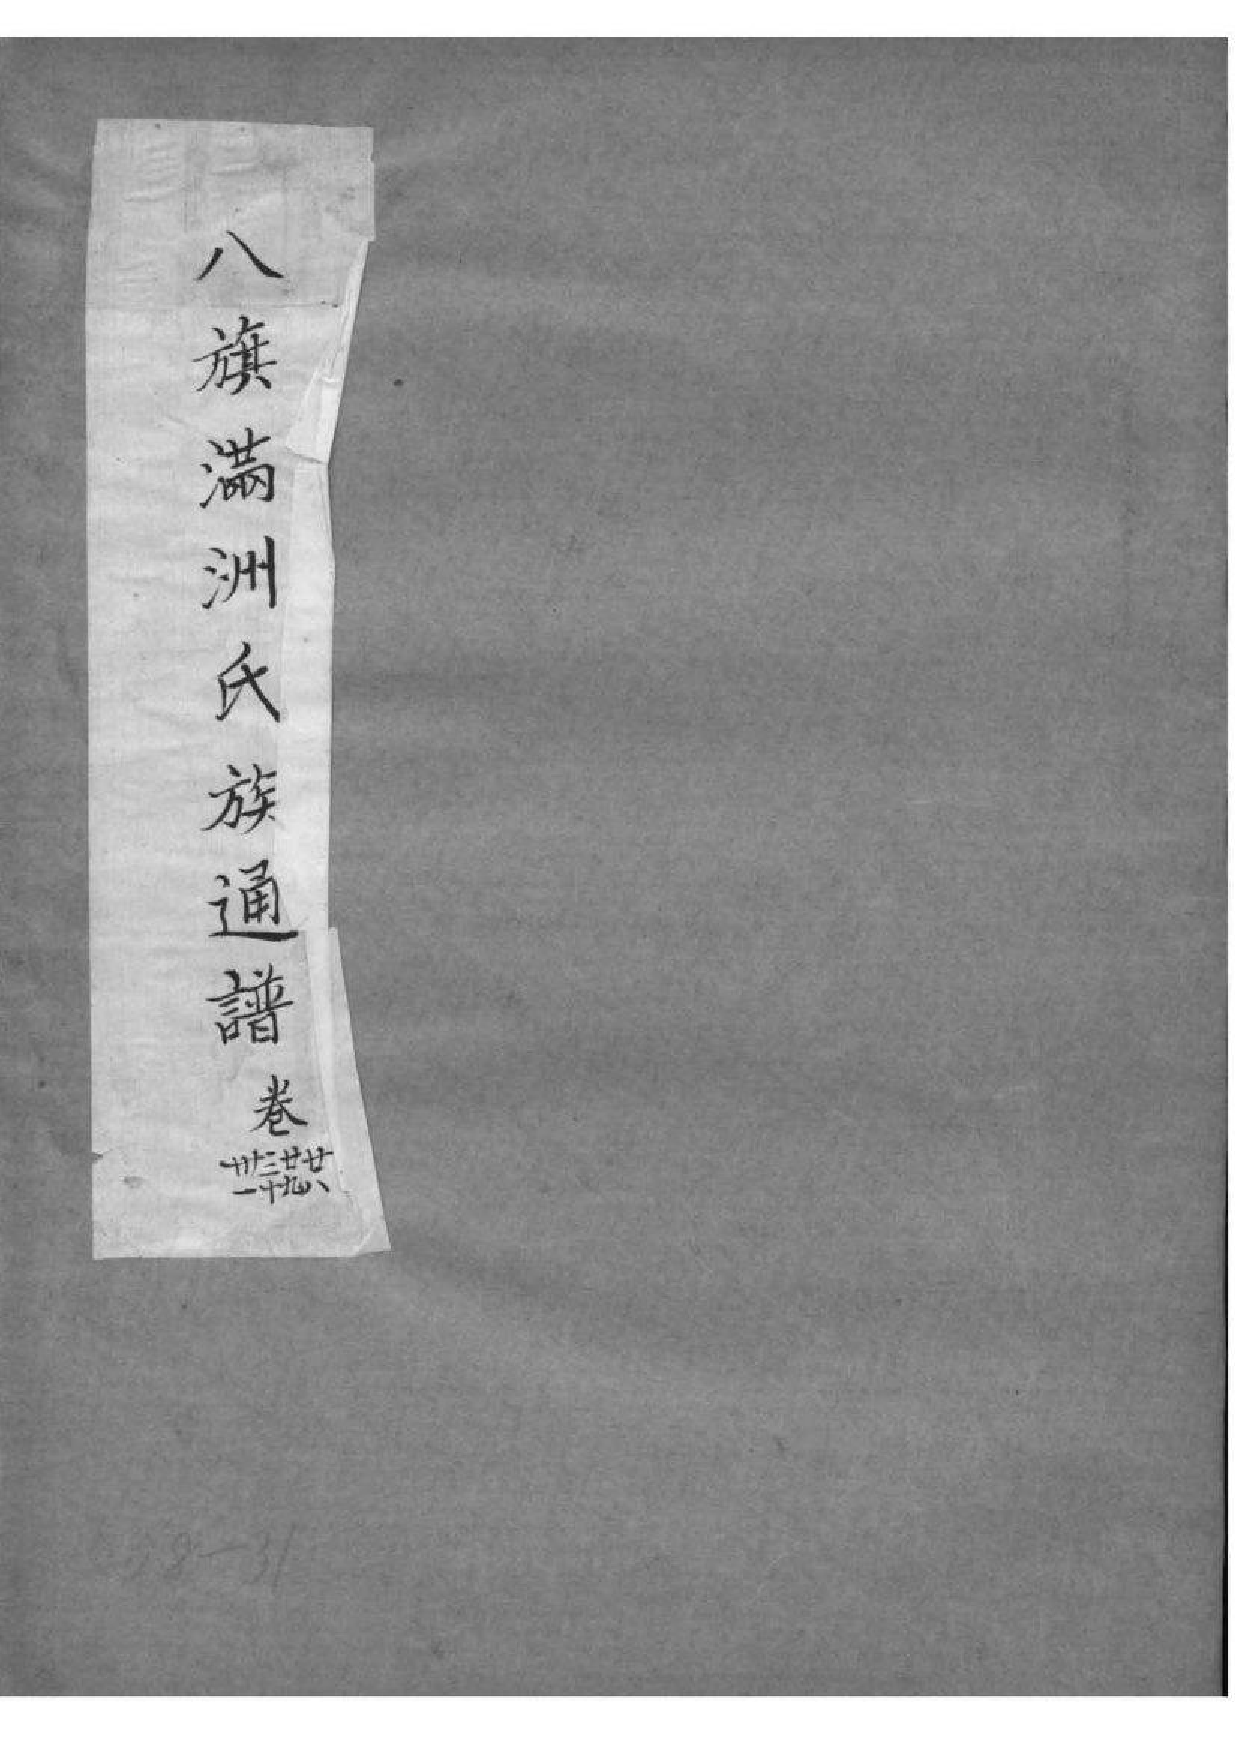 八旗滿洲氏族通譜 卷
廿八
廿九
三十
卅一
28-31